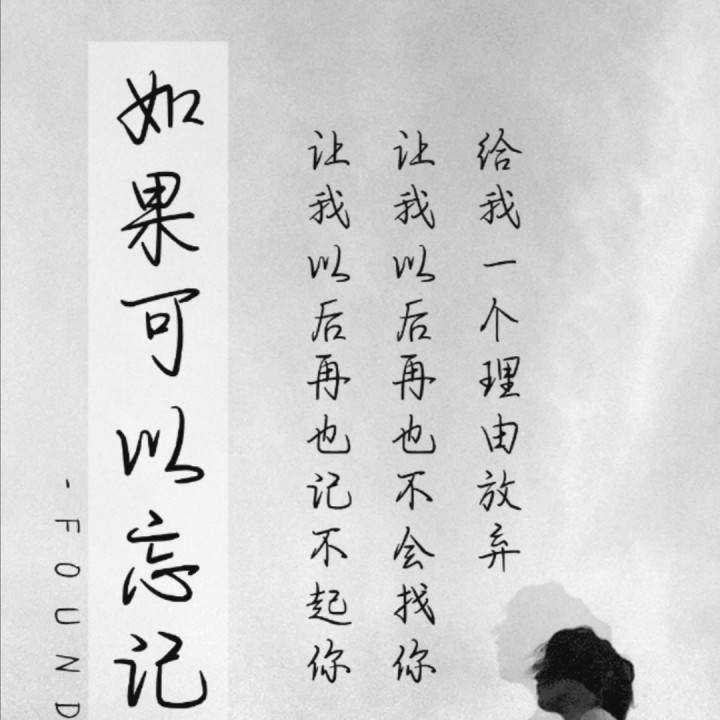 给我一个理由放弃
让我以后再也不会找你
让我以后再也记不起你
如果可以忘记
- FOUND